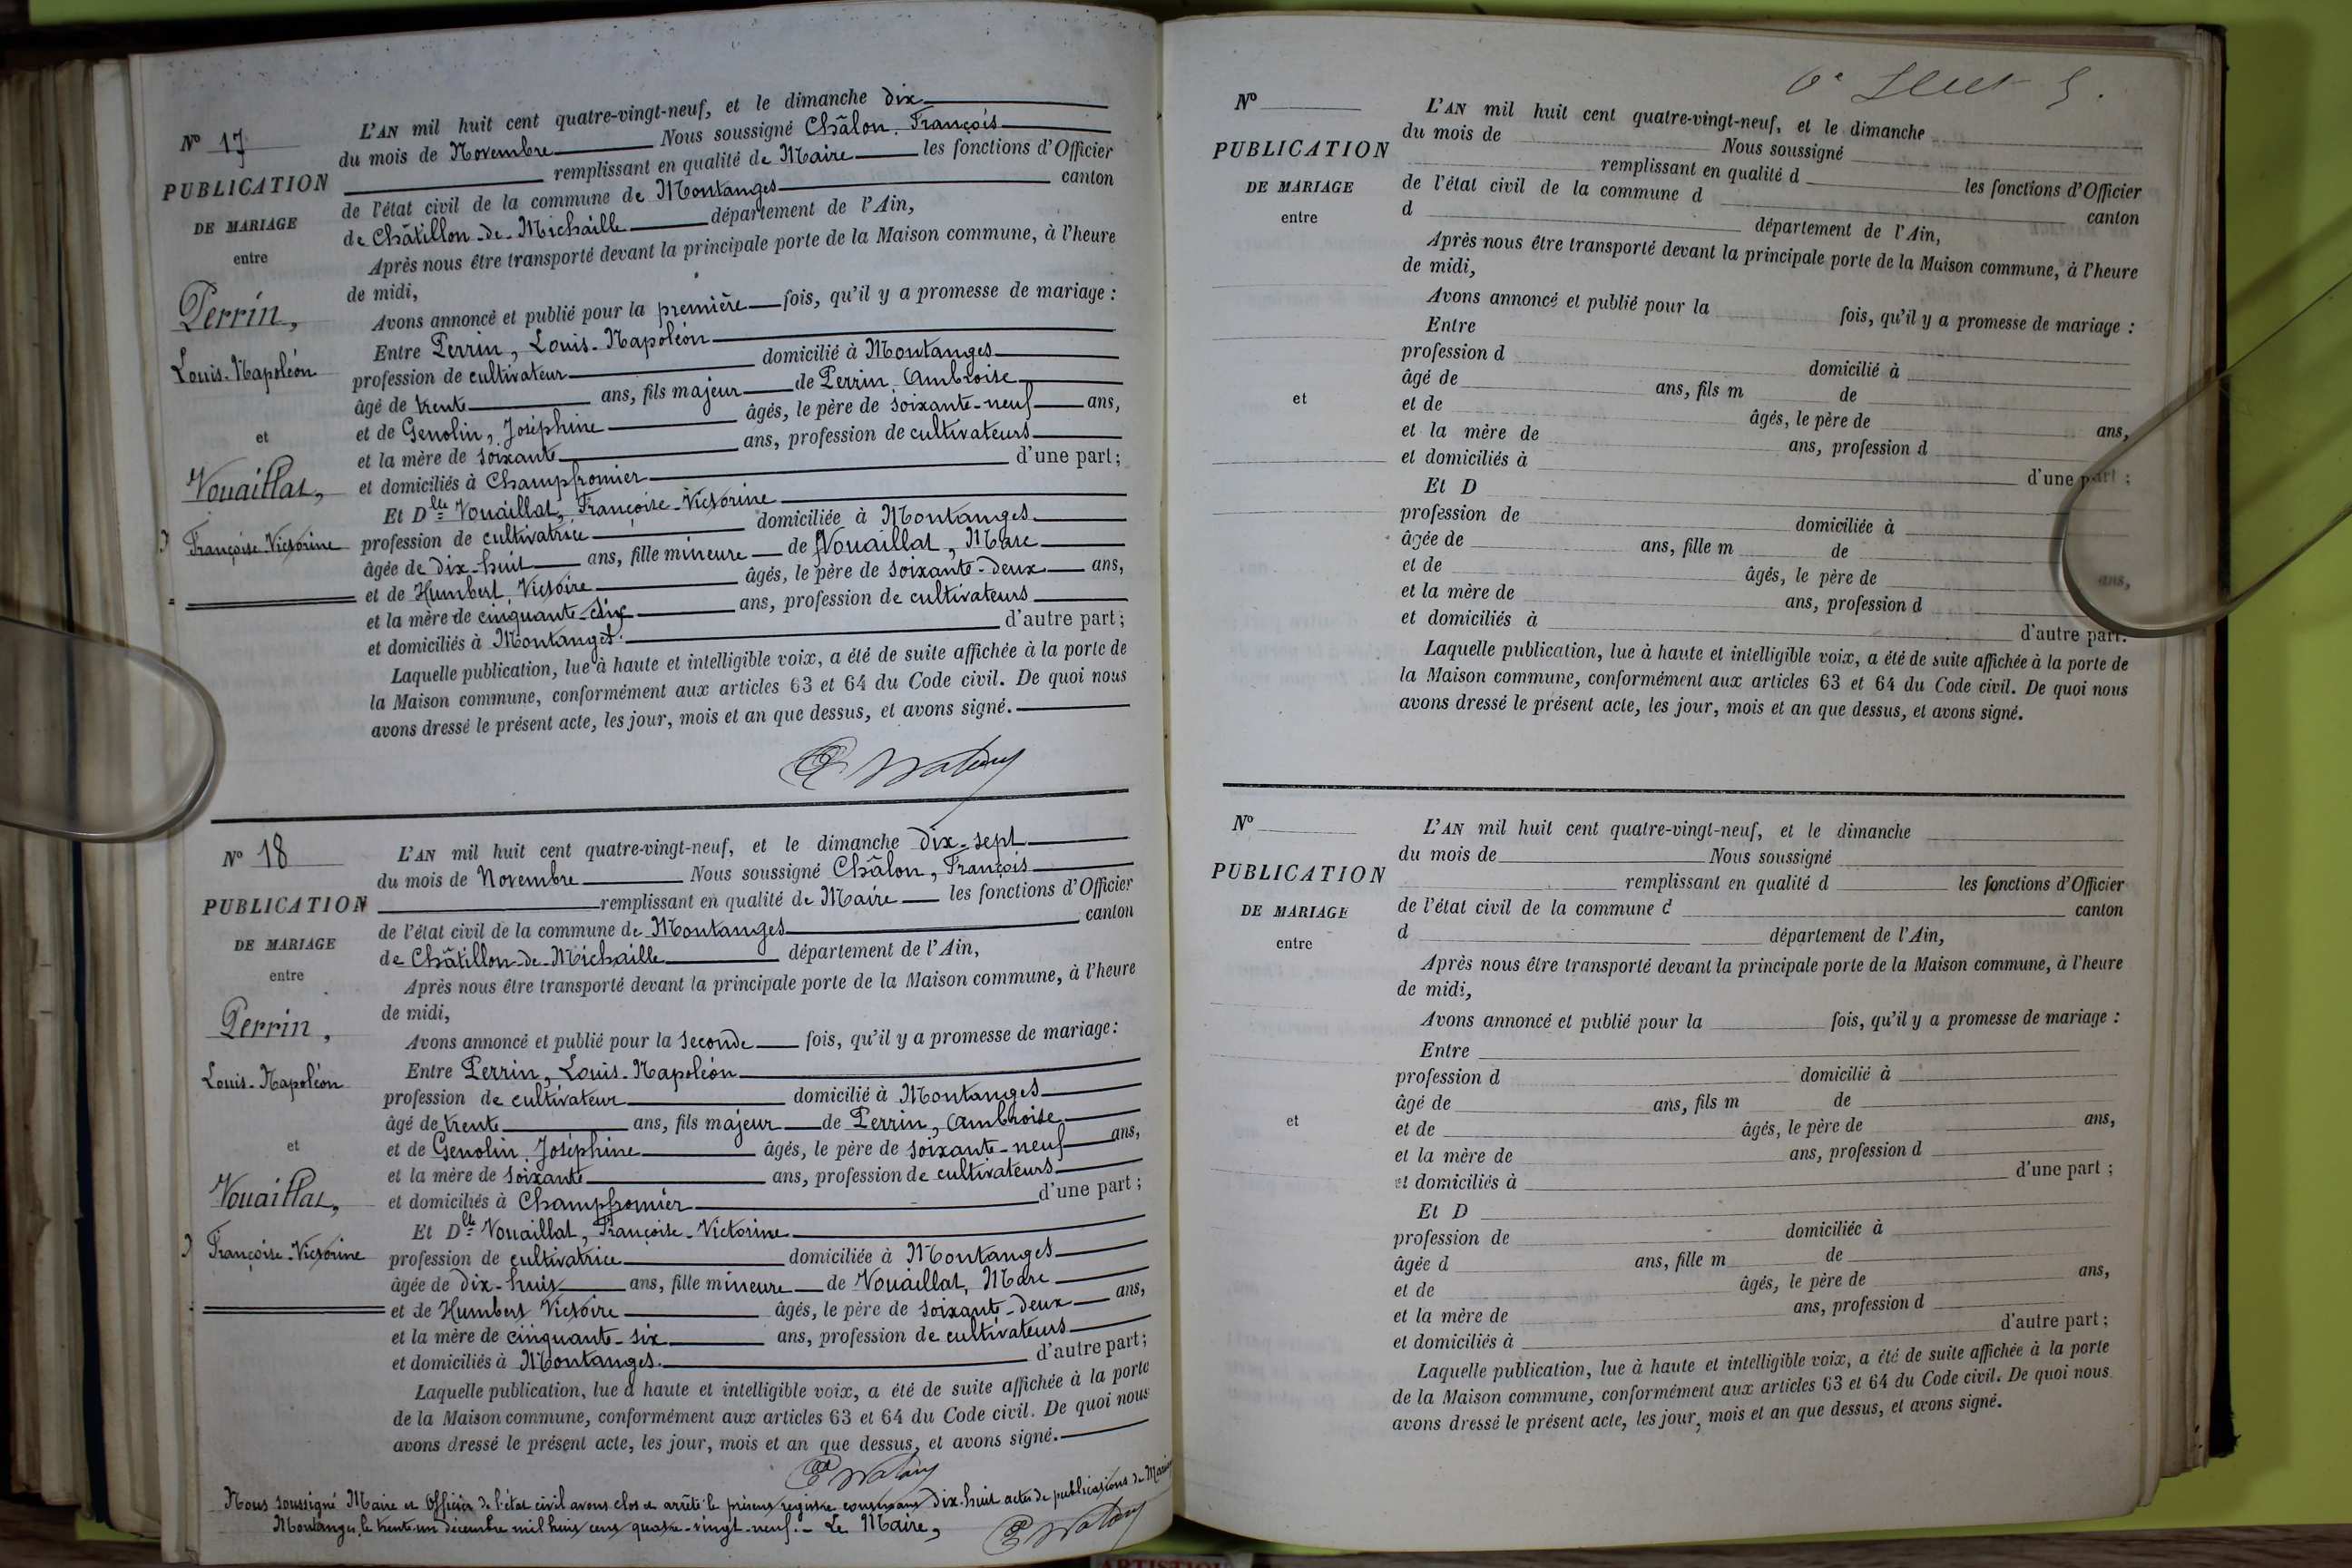 Nº 17
PUBLICATION
DE MARIAGE
entre
Perrin,
Louis-Napoléon
et
Vouaillat,
Françoise-Victorine
L'AN mil huit cent quatre-vingt-neuf, et le dimanche dix
du mois de Novembre Nous soussigné Châlon, François
remplissant en qualité de Maire les fonctions d'Officier
de l'état civil de la commune de Montanges canton
de Châtillon-de-Michaille département de l'Ain,
Après nous être transporté devant la principale porte de la Maison commune, à l'heure
de midi,
Avons annoncé et publié pour la première fois, qu'il y a promesse de mariage :
Entre Perrin, Louis-Napoléon
profession de cultivateur domicilié à Montanges
âgé de trente ans, fils majeur de Perrin, Ambroise
et de Genolin, Joséphine âgés, le père de soixante-neuf ans,
et la mère de soixante ans, profession de cultivateurs
et domiciliés à Champfromier d'une part ;
Et Dlle Vouaillat, Françoise-Victorine
profession de cultivatrice domiciliée à Montanges
âgée de dix-huit ans, fille mineure de Vouaillat, Marc
et de Humbert Victoire âgés, le père de soixante-deux ans,
et la mère de cinquante-six ans, profession de cultivateurs
et domiciliés à Montanges. d'autre part ;
Laquelle publication, lue à haute et intelligible voix, a été de suite affichée à la porte de
la Maison commune, conformément aux articles 63 et 64 du Code civil. De quoi nous
avons dressé le présent acte, les jour, mois et an que dessus, et avons signé.
Nº 18
PUBLICATION
DE MARIAGE
entre
Perrin,
Louis-Napoléon
et
Vouaillat,
Françoise-Victorine
L'AN mil huit cent quatre-vingt-neuf, et le dimanche dix-sept
du mois de Novembre Nous soussigné Châlon, François
remplissant en qualité de Maire les fonctions d'Officier
de l'état civil de la commune de Montanges canton
de Châtillon-de-Michaille département de l'Ain,
Après nous être transporté devant la principale porte de la Maison commune, à l'heure
de midi,
Avons annoncé et publié pour la seconde fois, qu'il y a promesse de mariage :
Entre Perrin, Louis-Napoléon
profession de cultivateur domicilié à Montanges
âgé de trente ans, fils majeur de Perrin, Ambroise
et de Genolin, Joséphine âgés, le père de soixante-neuf ans,
et la mère de soixante ans, profession de cultivateurs
et domiciliés à Champfromier d'une part ;
Et Dlle Vouaillat, Françoise-Victorine
profession de cultivatrice domiciliée à Montanges
âgée de dix-huit ans, fille mineure de Vouaillat, Marc
et de Humbert Victoire âgés, le père de soixante-deux ans,
et la mère de cinquante-six ans, profession de cultivateurs
et domiciliés à Montanges. d'autre part ;
Laquelle publication, lue à haute et intelligible voix, a été de suite affichée à la porte
de la Maison commune, conformément aux articles 63 et 64 du Code civil. De quoi nous
avons dressé le présent acte, les jour, mois et an que dessus, et avons signé.
Nous soussigné Maire et Officier de l'état civil avons clos et arrêté le présent registre contenant dix-huit actes de publications de
Montanges, le trente-un décembre mil huit cent quatre-vingt-neuf.- Le Maire,
Nº
PUBLICATION
DE MARIAGE
entre
et
L'AN mil huit cent quatre-vingt-neuf, et le dimanche
du mois de Nous soussigné
remplissant en qualité d les fonctions d'Officier
de l'état civil de la commune d canton
d département de l'Ain,
Après nous être transporté devant la principale porte de la Maison commune, à l'heure
de midi,
Avons annoncé et publié pour la fois, qu'il y a promesse de mariage :
Entre
profession d domicilié à
âgé de ans, fils m de
et de âgés, le père de ans,
et la mère de ans, profession d
et domiciliés à d'une part ;
Et D
profession de domiciliée à
âgée de ans, fille m de
et de âgés, le père de ans,
et la mère de ans, profession d
et domiciliés à d'autre part.
Laquelle publication, lue à haute et intelligible voix, a été de suite affichée à la porte de
la Maison commune, conformément aux articles 63 et 64 du Code civil. De quoi nous
avons dressé le présent acte, les jour, mois et an que dessus, et avons signé.
Nº
PUBLICATION
DE MARIAGE
entre
et
L'AN mil huit cent quatre-vingt-neuf, et le dimanche
du mois de Nous soussigné
remplissant en qualité d les fonctions d'Officier
de l'état civil de la commune d canton
d département de l'Ain,
Après nous être transporté devant la principale porte de la Maison commune, à l'heure
de midi,
Avons annoncé et publié pour la fois, qu'il y a promesse de mariage :
Entre
profession d domicilié à
âgé de ans, fils m de
et de âgés, le père de ans,
et la mère de ans, profession d
et domiciliés à d'une part ;
Et D
profession de domiciliée à
âgée d ans, fille m de
et de âgés, le père de ans,
et la mère de ans, profession d
et domiciliés à d'autre part ;
Laquelle publication, lue à haute et intelligible voix, a été de suite affichée à la porte
de la Maison commune, conformément aux articles 63 et 64 du Code civil. De quoi nous
avons dressé le présent acte, les jour, mois et an que dessus, et avons signé.